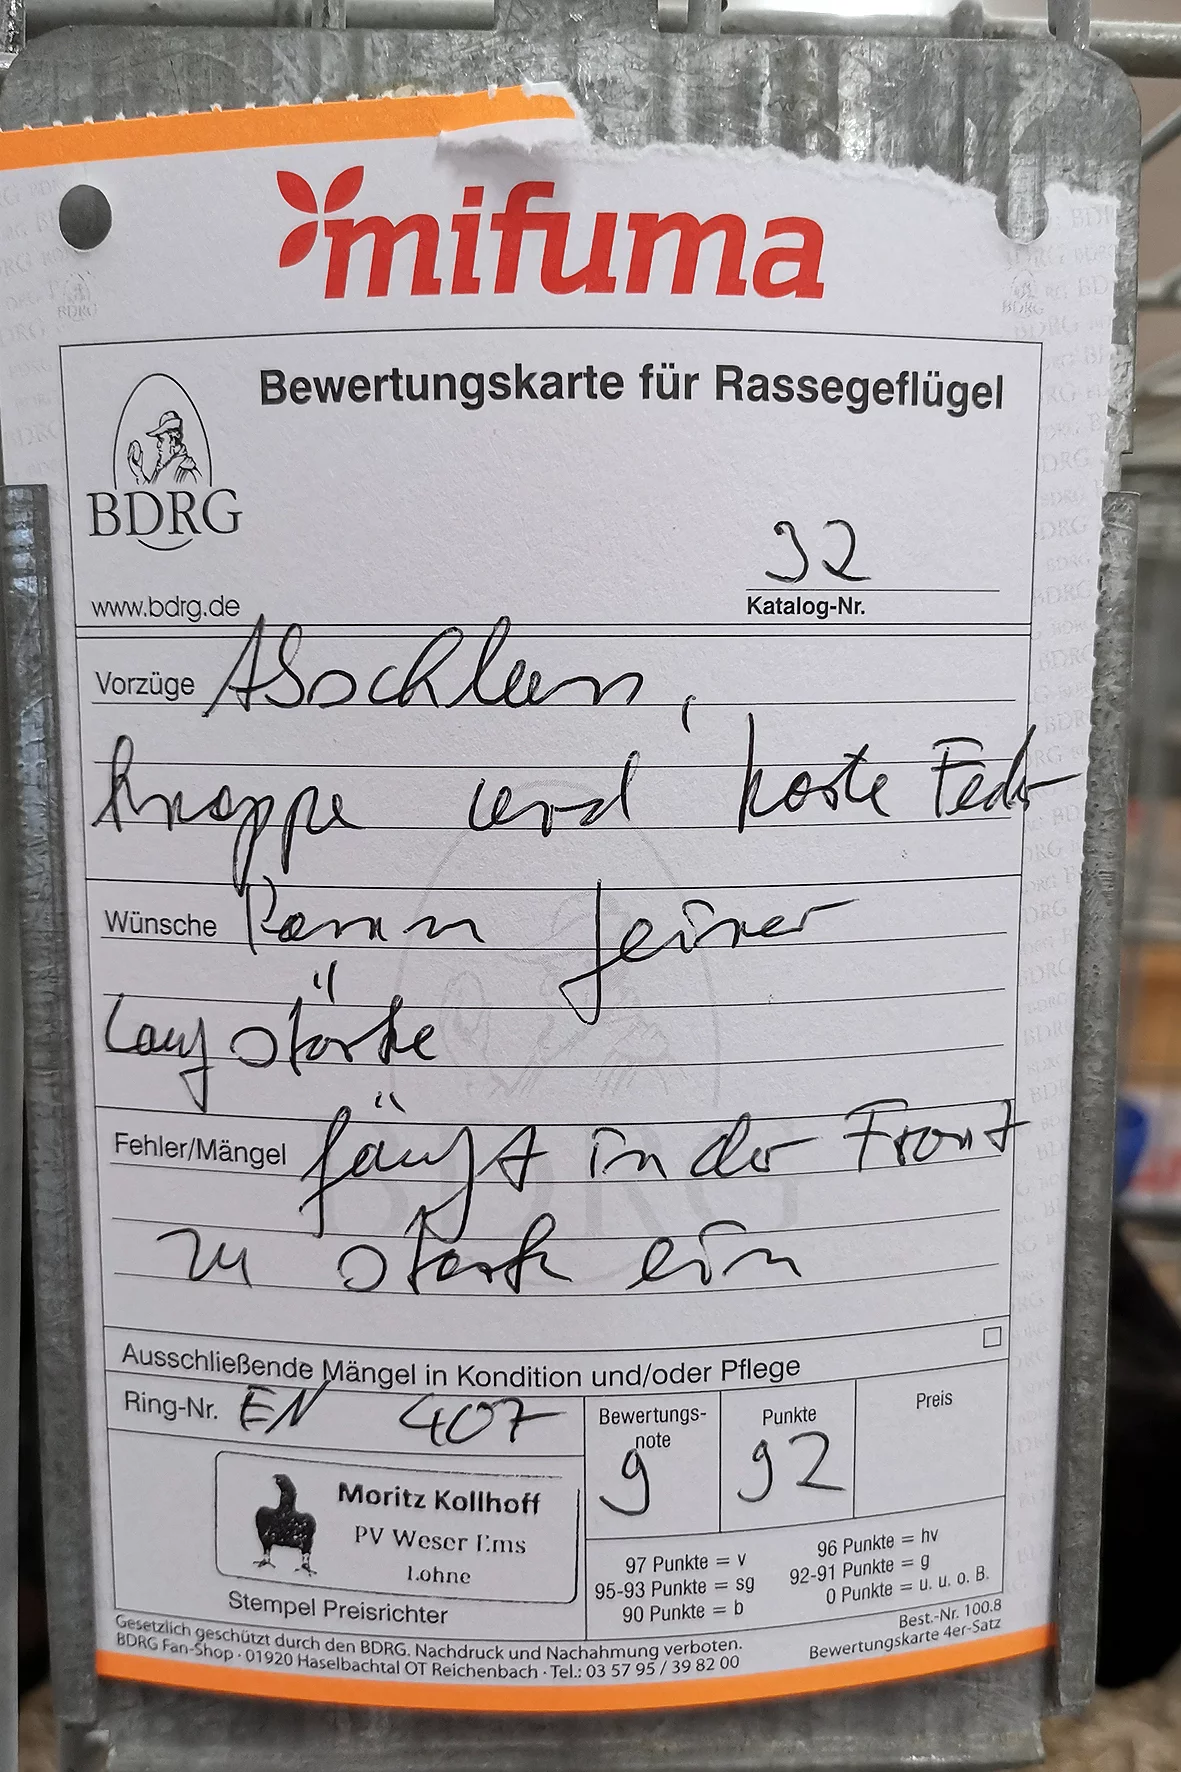 mifuma
Bewertungskarte für Rassegeflügel
BDRG
www.bdrg.de
92
Katalog-Nr.
Vorzüge
knappe und harte Feder
Wünsche Kamm feiner
Laufstärke
Fehler/Mängel fängt in der Front
zu stark ein
Ausschließende Mängel in Kondition und/oder Pflege
Ring-Nr. EN 407
Bewertungs-
note
g
Punkte
92
Preis
Moritz Kollhoff
PV Weser Ems
Lohne
Stempel Preisrichter
97 Punkte = v
95-93 Punkte = sg
90 Punkte = b
96 Punkte = hv
92-91 Punkte = g
0 Punkte = u. u. o. B.
Gesetzlich geschützt durch den BDRG. Nachdruck und Nachahmung verboten.
BDRG Fan-Shop · 01920 Haselbachtal OT Reichenbach · Tel.: 03 57 95 / 39 82 00
Best.-Nr. 100.8
Bewertungskarte 4er-Satz